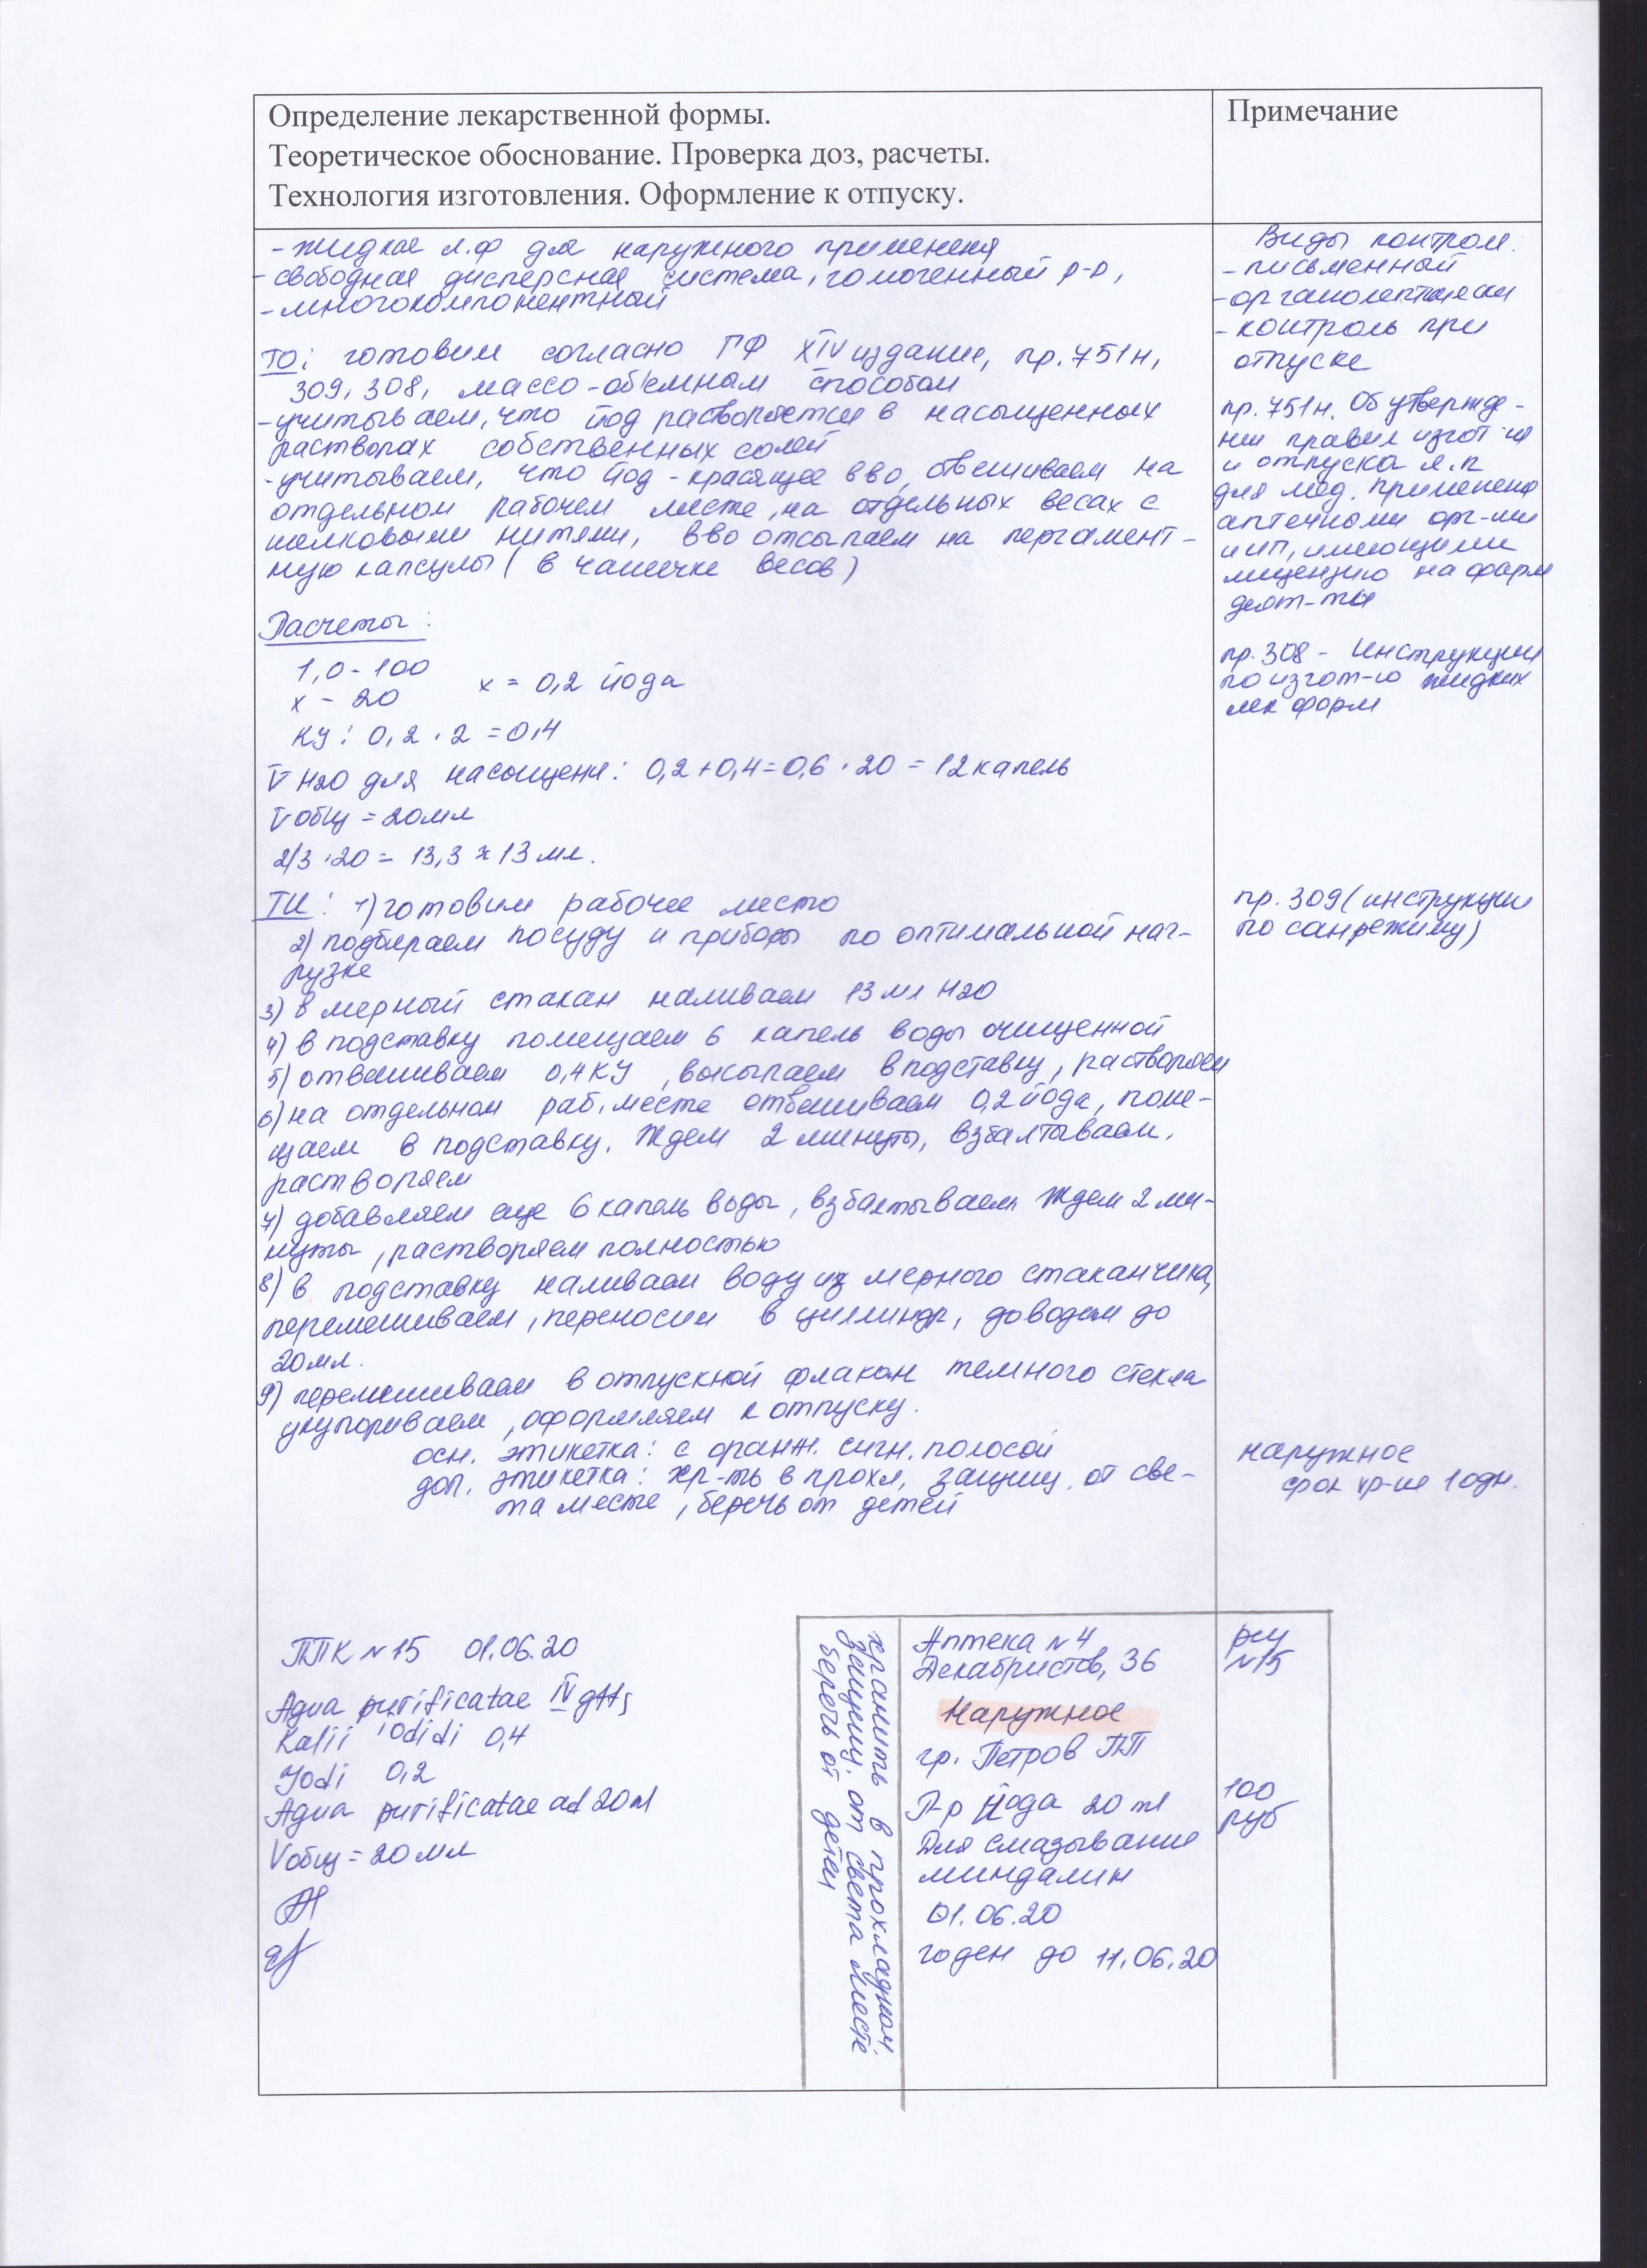 Определение лекарственной формы.
Теоретическое обоснование. Проверка доз, расчеты.
Технология изготовления. Оформление к отпуску.
Примечание
- жидкая л.ф для наружного применения
- свободная дисперсная система, гомогенный р-р,
- многокомпонентный
ТО: готовим согласно ГФ XIV издание, пр. 751н,
309, 308, массо-объемным способом
- учитываем, что йод растворяется в насыщенных
растворах собственных солей
- учитываем, что йод - красящее вво, отвешиваем на
отдельном рабочем месте, на отдельных весах с
шелковыми нитями, вво отсыпаем на пергамент-
ную капсулы (в чашечке весов)
Расчеты:
1,0 - 100
х - 20
х = 0,2 йода
КУ: 0,2 · 2 = 0,4
V H2O для насыщения: 0,2 + 0,4 = 0,6 · 20 = 12 капель
V общ = 20мл
2/3 · 20 = 13,3 ≈ 13 мл.
ТИ: 1) готовим рабочее место
2) подбираем посуду и приборы по оптимальной наг-
рузке
3) в мерный стакан наливаем 13 мл H2O
4) в подставку помещаем 6 капель воды очищенной
5) отвешиваем 0,4 КУ, высыпаем в подставку, растворяем
6) на отдельном раб. месте отвешиваем 0,2 йода, поме-
щаем в подставку. Ждем 2 минуты, взбалтываем,
растворяем
7) добавляем еще 6 капель воды, взбалтываем. Ждем 2 ми-
нуты, растворяем полностью
8) в подставку наливаем воду из мерного стаканчика,
перемешиваем, переносим в цилиндр, доводим до
20мл.
9) перемешиваем в отпускной флакон темного стекла
укупориваем, оформляем к отпуску.
осн. этикетка: с оранж. сигн. полосой
доп. этикетка: хр-ть в прохл, защищ. от све-
та месте, беречь от детей
Виды контроля:
- письменный
- органолептически
- контроль при
отпуске
пр. 751н. Об утвержде-
нии правил изгот-ия
и отпуска л.п
для мед. применения
аптечными орг-ми
и ип, имеющими
лицензию на фарм
деят-ть
пр. 308 - Инструкции
по изгот-ю жидких
лек форм
пр. 309 (инструкции
по санрежиму)
наружное
срок хр-ия 10дн.
ППК №15 01.06.20
Aqua purificatae IV gtts
Kalii iodidi 0,4
Jodi 0,2
Aqua purificatae ad 20ml
Vобщ = 20мл
хранить в прохладном,
защищ. от света месте
беречь от детей
Аптека №4
Декабристов, 36
Наружное
гр. Петров ПП
Р-р Йода 20 ml
Для смазывание
миндалин
01.06.20
годен до 11.06.20
рец
№15
100
руб